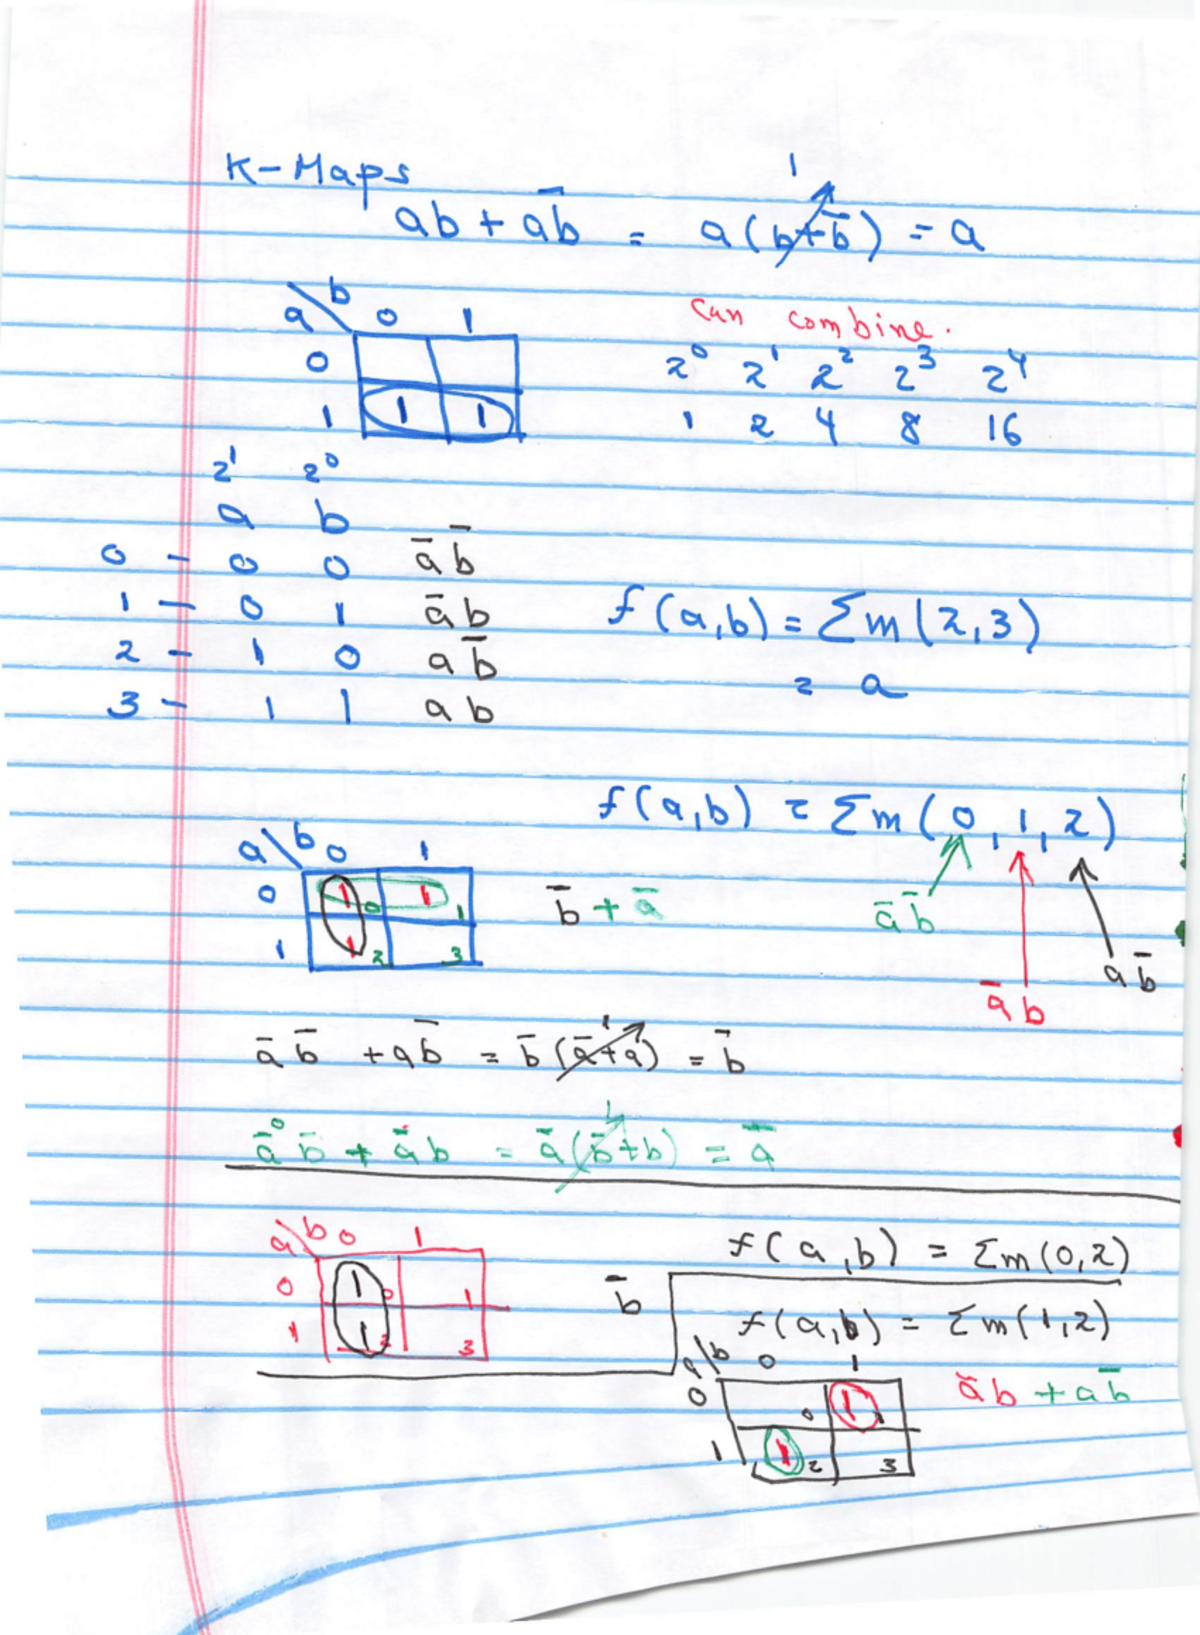 K-Maps
1
ab + ab̄ = a(b+b̄) = a
a\b 0 1
0
1 1 1
can combine.
2⁰ 2¹ 2² 2³ 2⁴
1 2 4 8 16
2¹ 2⁰
a b
0 - 0 0 āb̄
1 - 0 1 āb
2 - 1 0 ab̄
3 - 1 1 ab
f(a,b) = Σm(2,3)
= a
f(a,b) = Σm(0,1,2)
āb̄
āb
ab̄
a\b 0 1
0 1 0 1 1
1 1 2 3
b̄ + ā
1
āb̄ + ab̄ = b̄(ā+a) = b̄
0 1
āb̄ + āb = ā(b̄+b) = ā
a\b 0 1
0 1 0 1
1 1 2 3
b̄
f(a,b) = Σm(0,2)
f(a,b) = Σm(1,2)
a\b 0 1
0 0 1 1
1 1 2 3
āb + ab̄